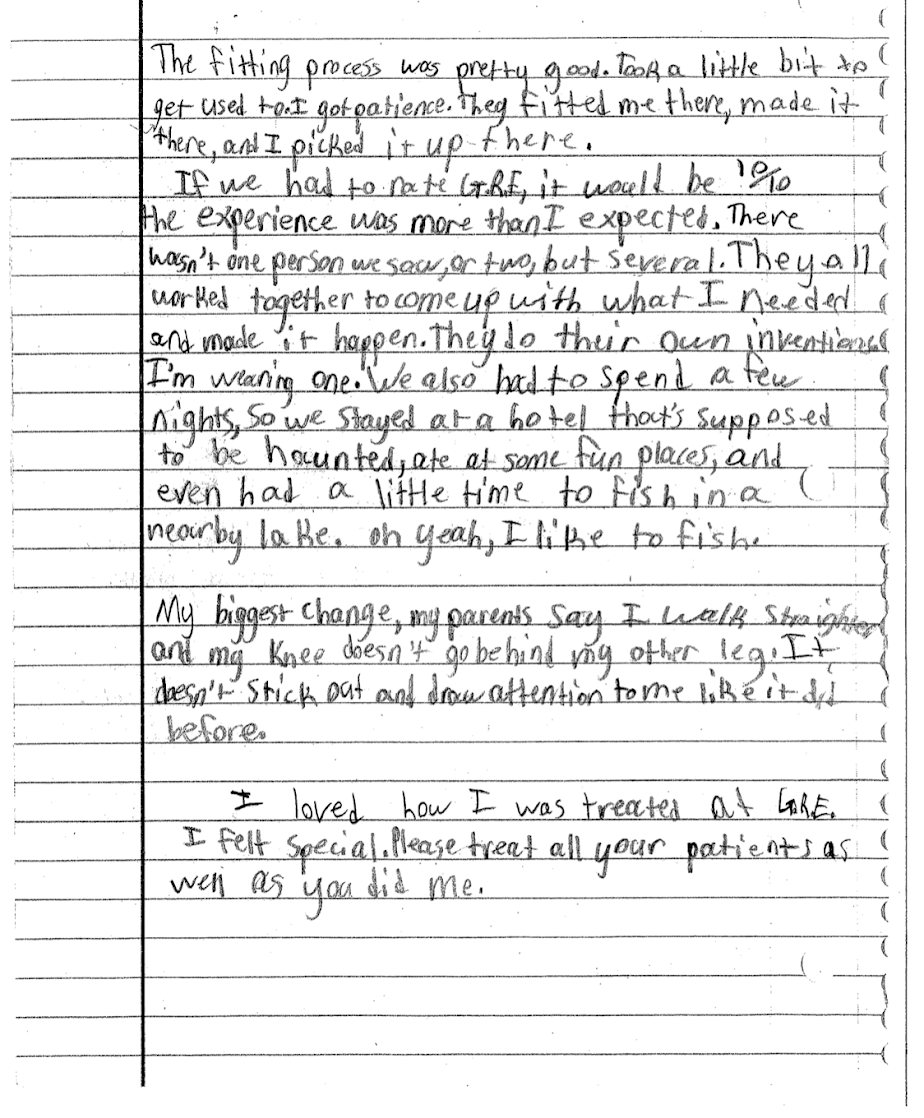 The fitting process was pretty good. Took a little bit to
get used to. I got patience. They fitted me there, made it
there, and I picked it up there.
If we had to rate G.R.E, it would be 10/10
the experience was more than I expected. There
wasn't one person we saw, or two, but several. They all
worked together to come up with what I needed
and made it happen. They do their own inventions
I'm wearing one. We also had to spend a few
nights, so we stayed at a hotel that's supposed
to be haunted, ate at some fun places, and
even had a little time to fish in a
nearby lake. oh yeah, I like to fish.
My biggest change, my parents say I walk straighter
and my knee doesn't go behind my other leg. It
doesn't stick out and draw attention to me like it did
before.
I loved how I was treated at G.R.E.
I felt special. Please treat all your patients as
well as you did me.